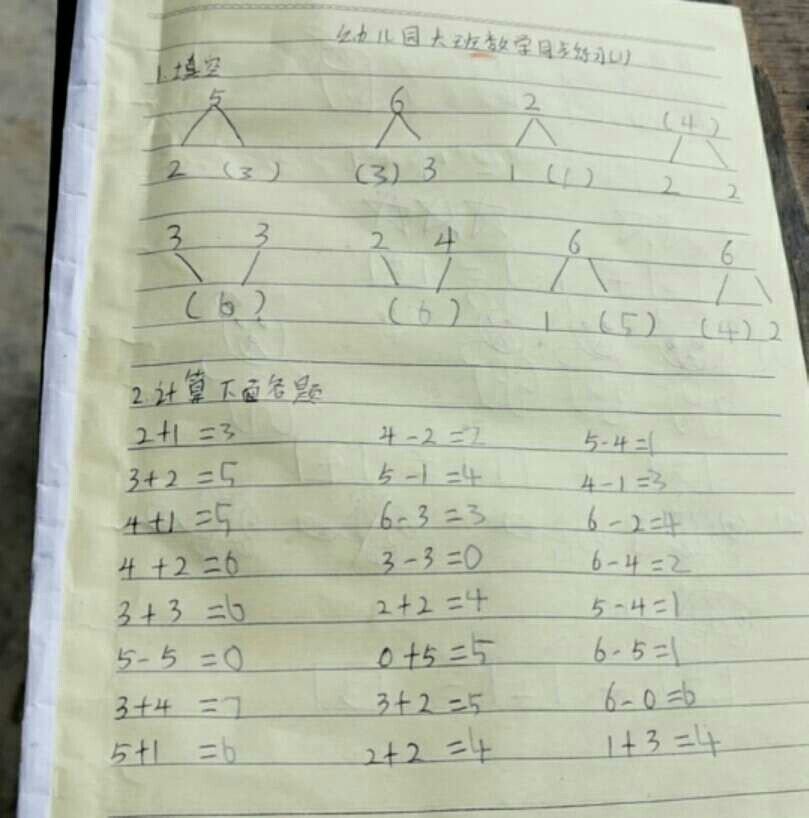 幼儿园大班数学同步练习(1)
1.填空
5 6 2 (4)
2 (3) (3) 3 1 (1) 2 2
3 3 2 4 6 6
(6) (6) 1 (5) (4) 2
2.计算下面各题
2+1=3 4-2=2 5-4=1
3+2=5 5-1=4 4-1=3
4+1=5 6-3=3 6-2=4
4+2=6 3-3=0 6-4=2
3+3=6 2+2=4 5-4=1
5-5=0 0+5=5 6-5=1
3+4=7 3+2=5 6-0=6
5+1=6 2+2=4 1+3=4